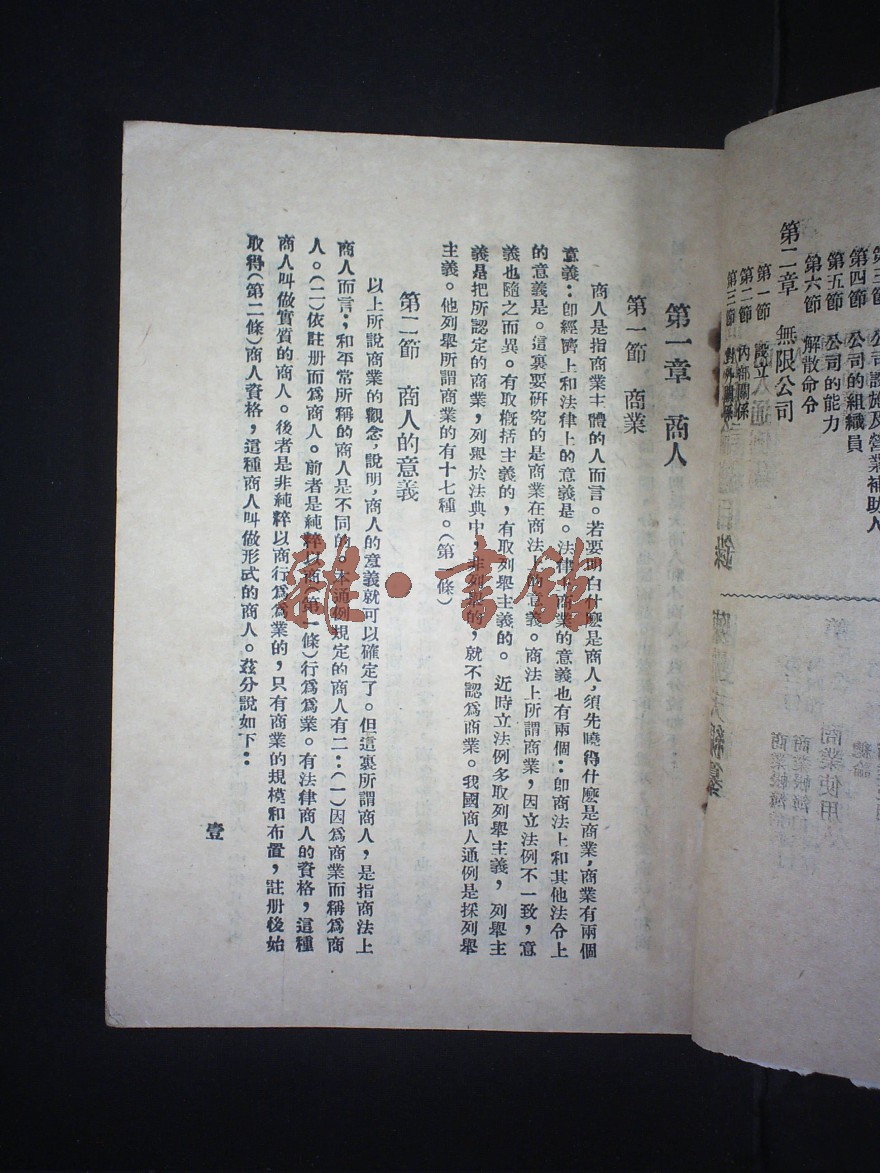 第三節　公司設施及營業補助人
第四節　公司的組織員
第五節　公司的能力
第六節　解散命令
第二章　無限公司
第一節　設立
第二節　內部關係
第三節　對外關係
第一章　商人
第一節　商業
商人是指商業主體的人而言。若要明白什麽是商人，須先曉得什麽是商業，商業有兩個
意義：卽經濟上和法律上的意義是。法律上商業的意義也有兩個：卽商法上和其他法令上
的意義是。這裏要研究的是商業在商法上的意義。商法上所謂商業，因立法例不一致，意
義也隨之而異。有取概括主義的，有取列舉主義的。近時立法例多取列舉主義，列舉主
義是把所認定的商業，列舉於法典中，非列舉的，就不認爲商業。我國商人通例是採列舉
主義。他列舉所謂商業的有十七種。（第一條）
第二節　商人的意義
以上所說商業的觀念，說明，商人的意義就可以確定了。但這裏所謂商人，是指商法上
商人而言；和平常所稱的商人是不同的。本通例規定的商人有二：（一）因爲商業而稱爲商
人。（二）依註册而爲商人。前者是純粹以商（第一條）行爲爲業。有法律商人的資格，這種
商人叫做實質的商人。後者是非純粹以商行爲爲業的，只有商業的規模和布置，註册後始
取得（第二條）商人資格，這種商人叫做形式的商人。茲分說如下：
壹
雜·書館